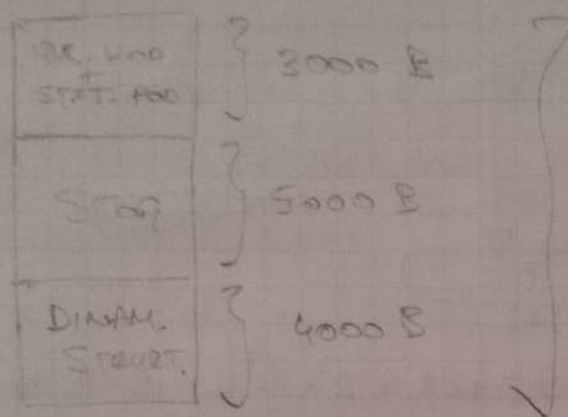 STAT. POD
3000 B
STOG
5000 B
DINAM.
STRUKT.
4000 B